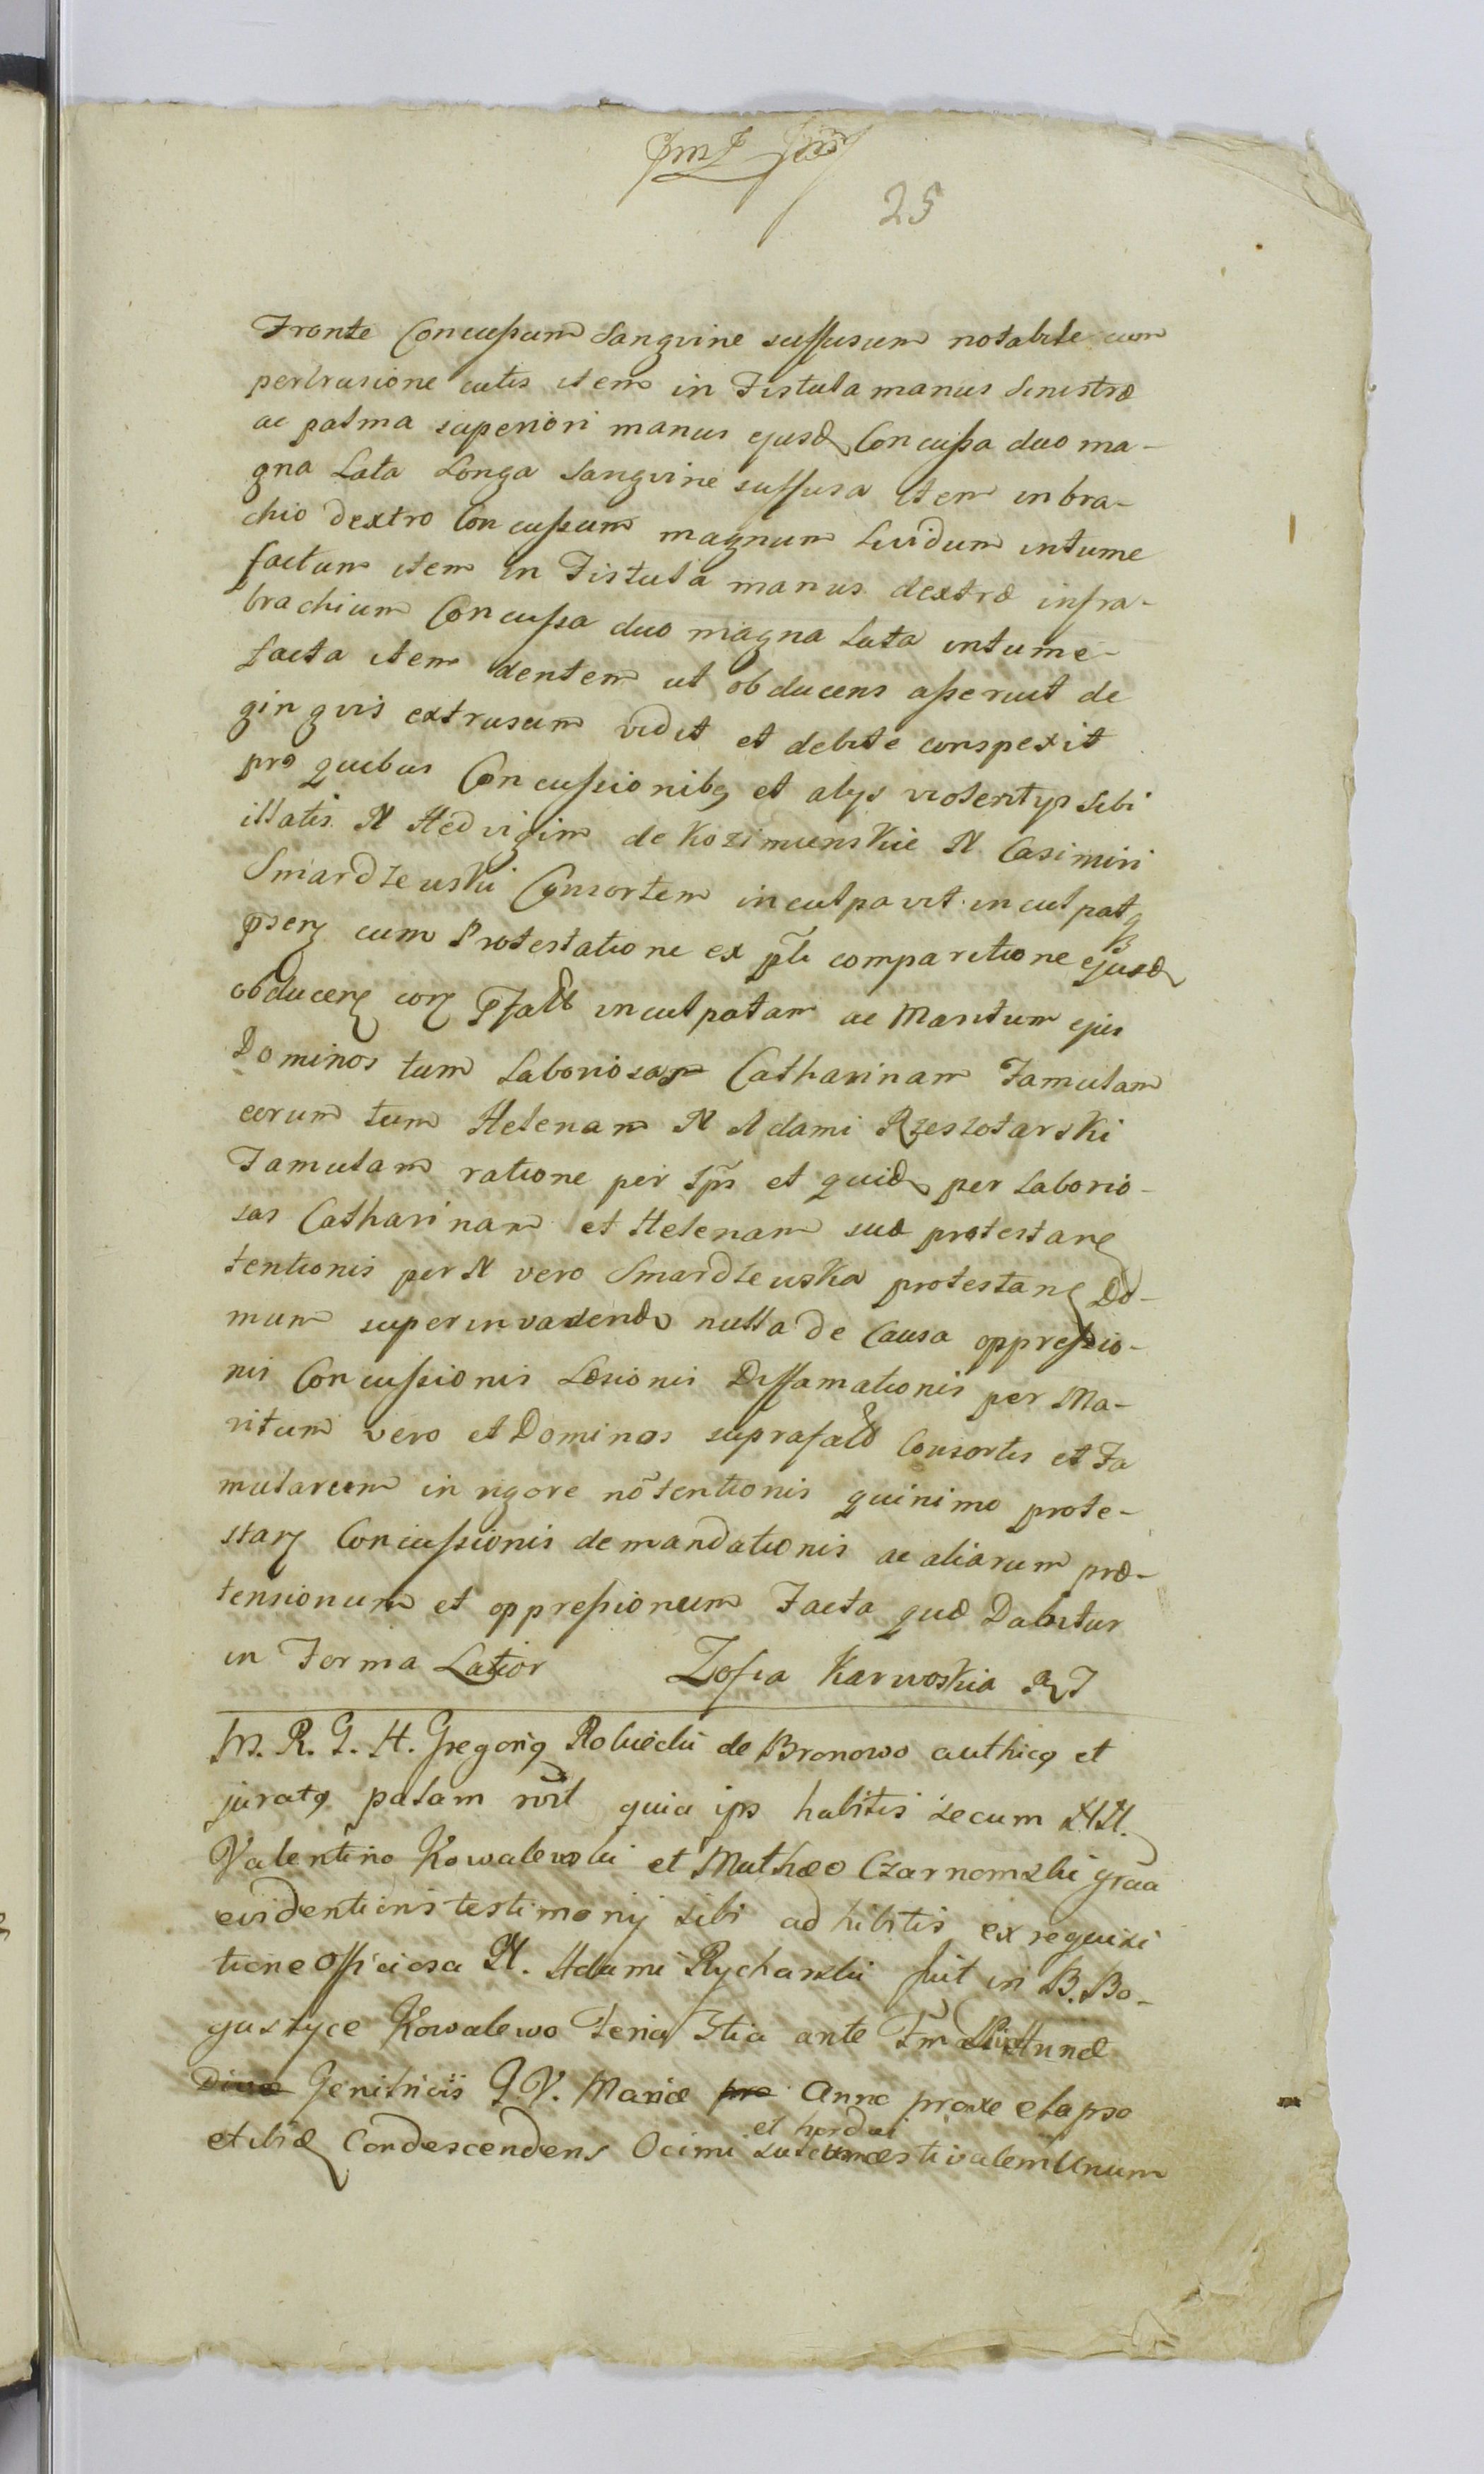 25
Fronte Concussum Sanguine suffusum notabile cum
pertrusione cutis item in Fistula manus Sinistræ
ac palma superiori manus ejusd Concussa duo ma-
gna Lata Longa Sanguine suffusa item in bra-
chio dextro Concussum magnum Lividum intume
factum item in Fistula manus dextræ infra-
brachium Concussa duo magna Lata intume-
facta item dentem ut obducens asseruit de
gingvis extrusum vidit et debite conspexit
pro quibus Concussionibq et alys violentys sibi
illatis N Hedvigim de Kozimunskie N Casimiri
Smardzeuski Consortem inculpavit inculpatq
cum Protestatione ex comparitione ejusd
obducen con inculpatam ac Maritum ejus
Dominos tum Laboriosam Catharinam Famulam
eorum tum Helenam N Adami Rzeszotarski
Famulam ratione per Ips et quid per Laborio-
sas Catharinam et Helenam suæ protestan
tentionis per N vero Smardzeuska protestan Do-
mum superinvadend nulla de Causa oppressio-
nis Concussionis Læsionis Diffamationis per Ma-
ritum vero et Dominos suprafatt Consortis et Fa
mularum in rigore nõtentionis quinimo prote-
stan Concussionis demandationis ac aliarum præ-
tensionum et oppressionum Facta quæ Dabitur
in Forma Latior Zofia Karwoskia
M. R. G. H. Gregoriq de Bronowo authicq et
juratq palam quia ips habitis secum NN.
Valentino Kowalewski et Mathæo Czarnomski grãa
evidentioris testimonij sibi adhibitis ex requisi
tione officiosa N. Adami Rycharski fuit in B. Bo-
guszyce Kowalewo Feria 3tia ante
Divæ Genitricis G. V. Mariæ pro Anno proxe elapso
et ibid Condescendens Ocimi et hordei æstivalem Unum